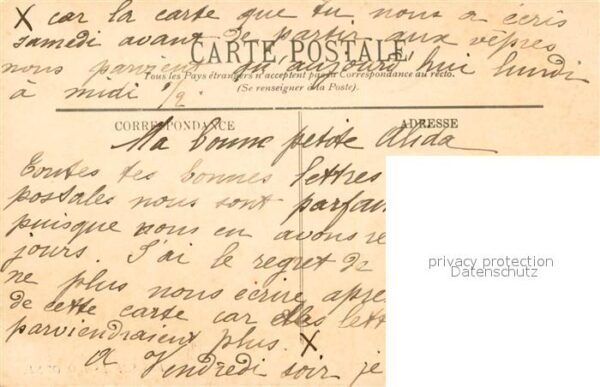 X car la carte que tu nous a écris
samedi avant de partir aux vêpres
CARTE POSTALE
nous parvient qu'aujourd'hui lundi
Tous les Pays étrangers n'acceptent pas la Correspondance au recto.
(Se renseigner à la Poste).
à midi 1/2.
CORRESPONDANCE
ADRESSE
Ma bonne petite Alida
Toutes tes bonnes lettres
postales nous sont parfai
puisque nous en avons re
jours. J'ai le regret de
ne plus nous écrire apre
de cette carte car les lett
parviendraient plus. X
A Vendredi soir je
privacy protection
Datenschutz